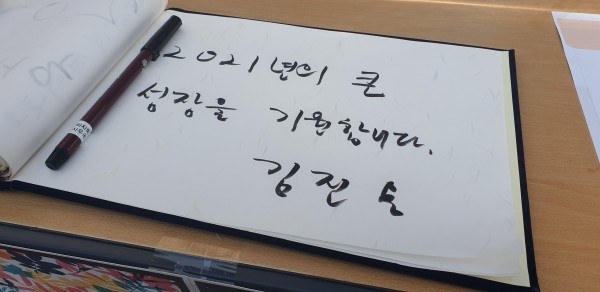 2021년의 큰
성장을 기원합니다.
김진